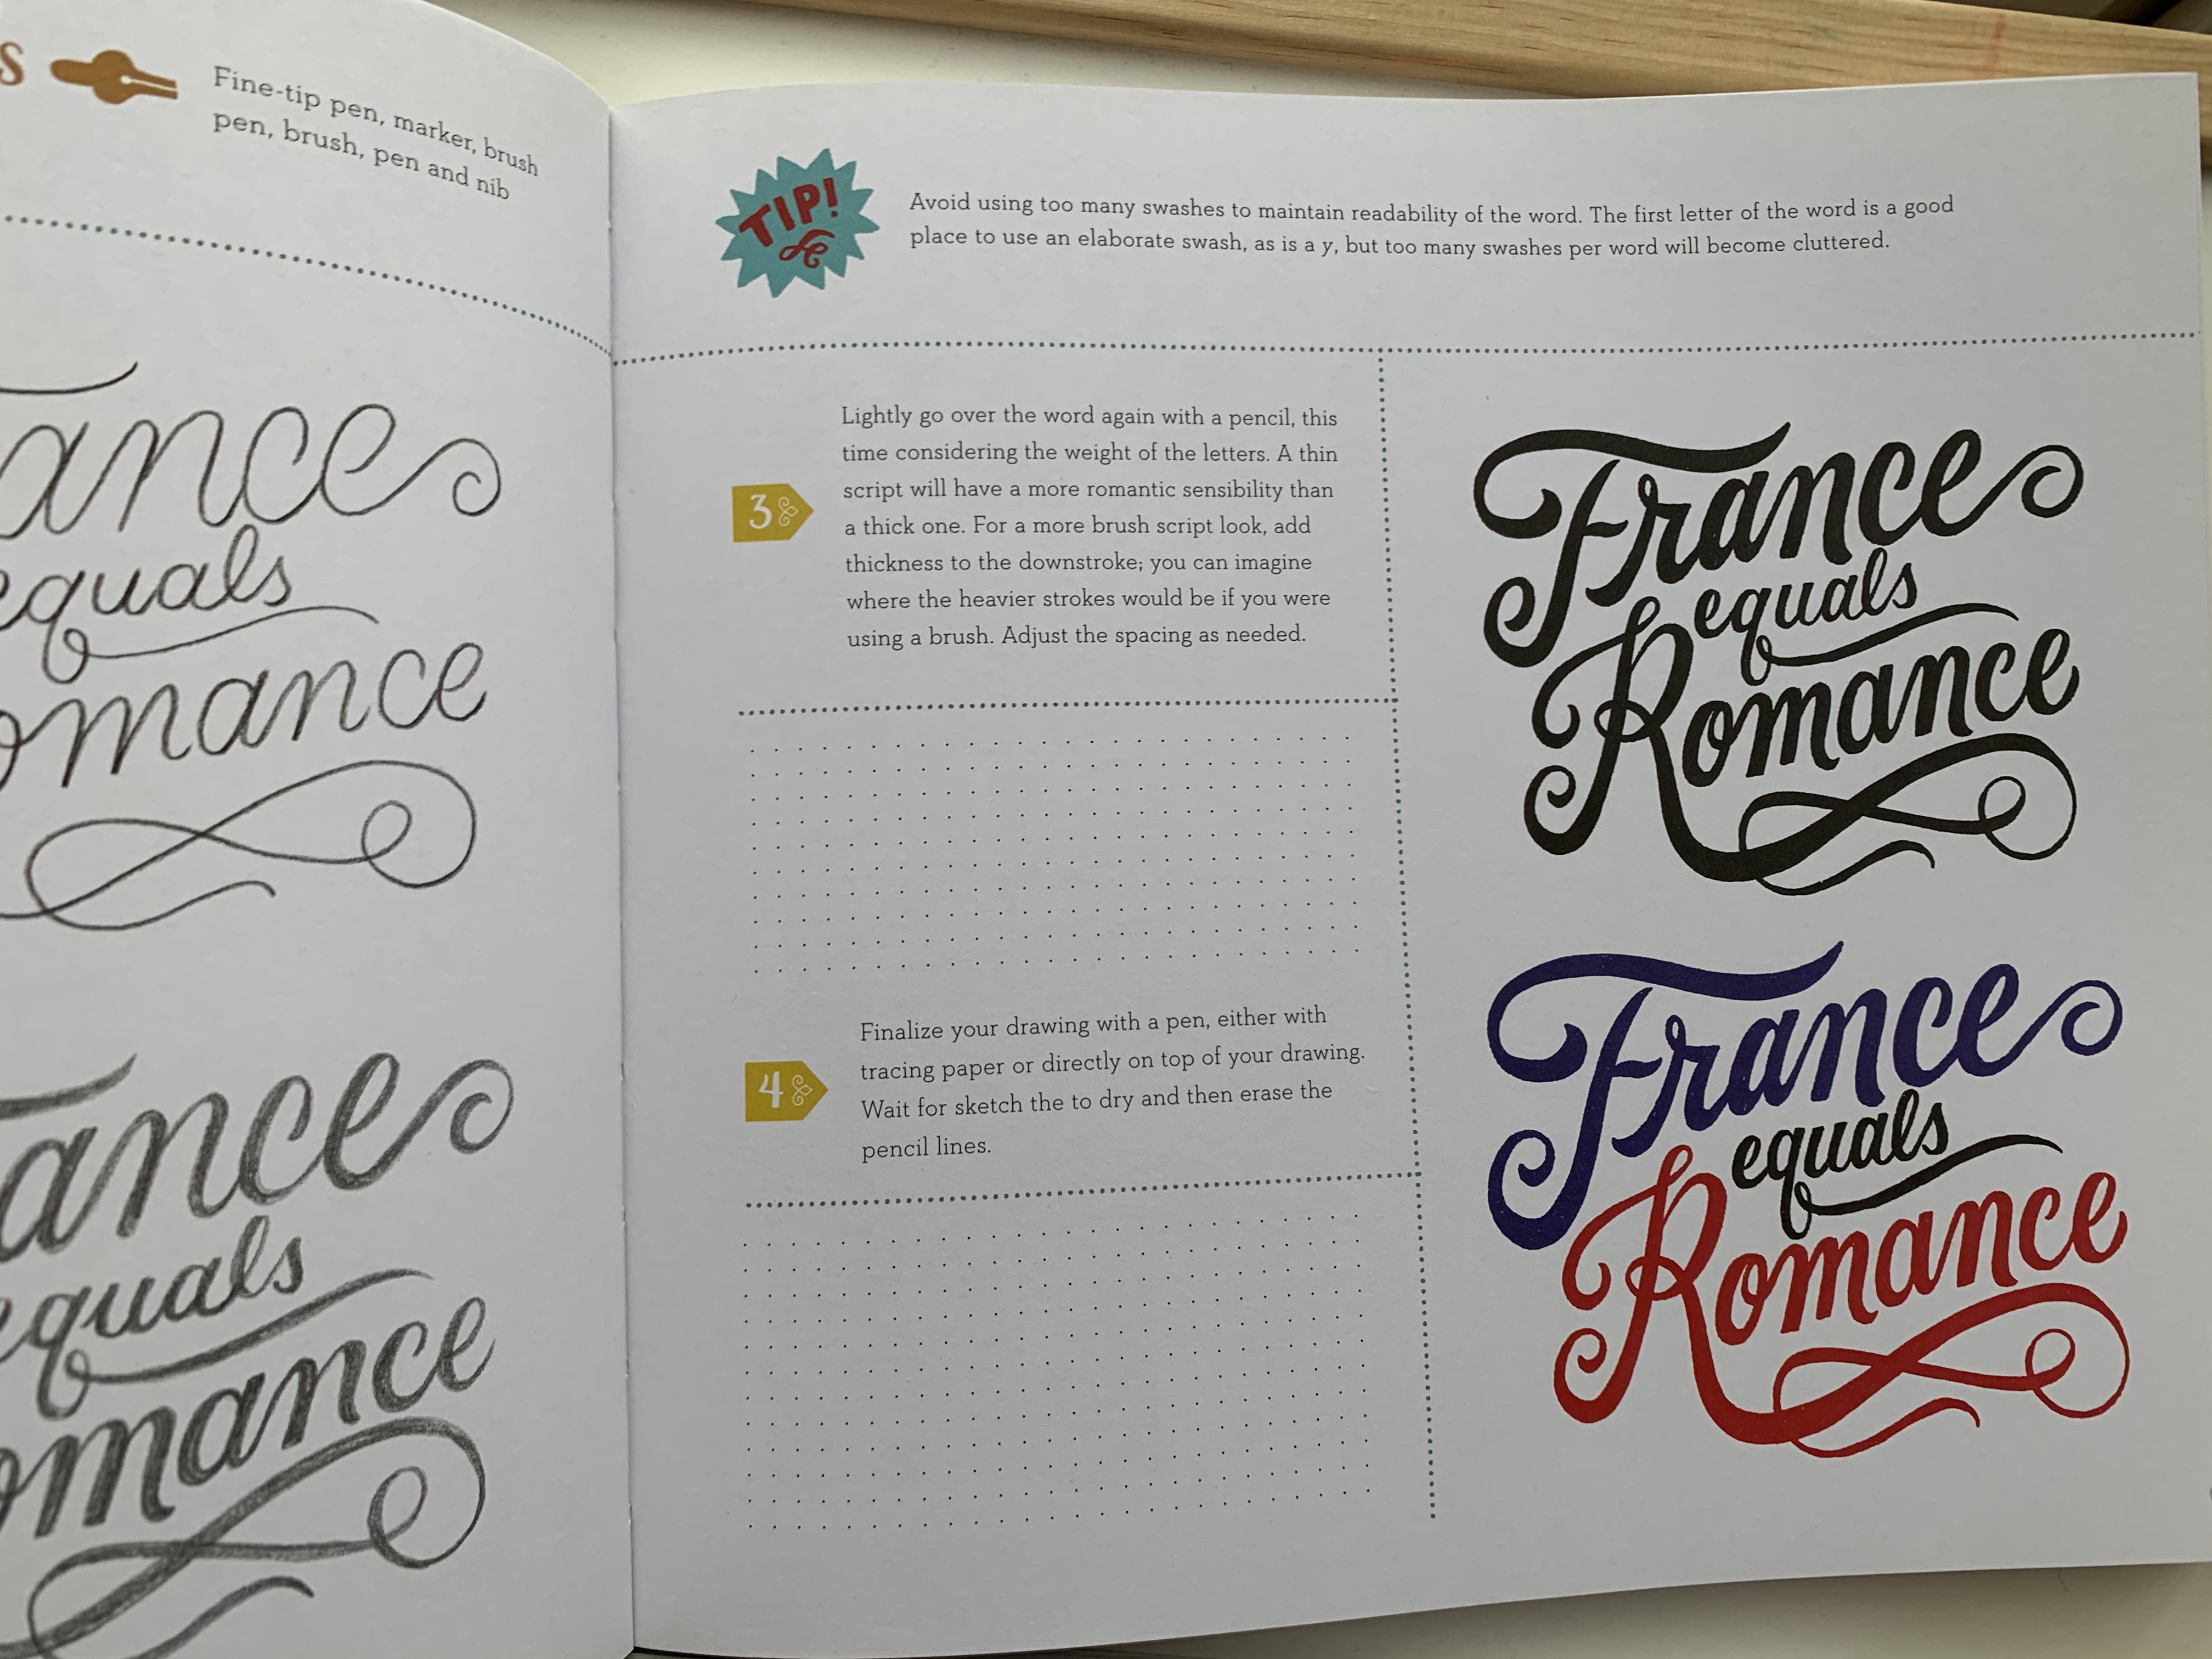 Fine-tip pen, marker, brush
pen, brush, pen and nib
ance
equals
omance
ance
equals
omance
TIP!
Avoid using too many swashes to maintain readability of the word. The first letter of the word is a good
place to use an elaborate swash, as is a y, but too many swashes per word will become cluttered.
3
Lightly go over the word again with a pencil, this
time considering the weight of the letters. A thin
script will have a more romantic sensibility than
a thick one. For a more brush script look, add
thickness to the downstroke; you can imagine
where the heavier strokes would be if you were
using a brush. Adjust the spacing as needed.
4
Finalize your drawing with a pen, either with
tracing paper or directly on top of your drawing.
Wait for sketch the to dry and then erase the
pencil lines.
France
equals
Romance
France
equals
Romance